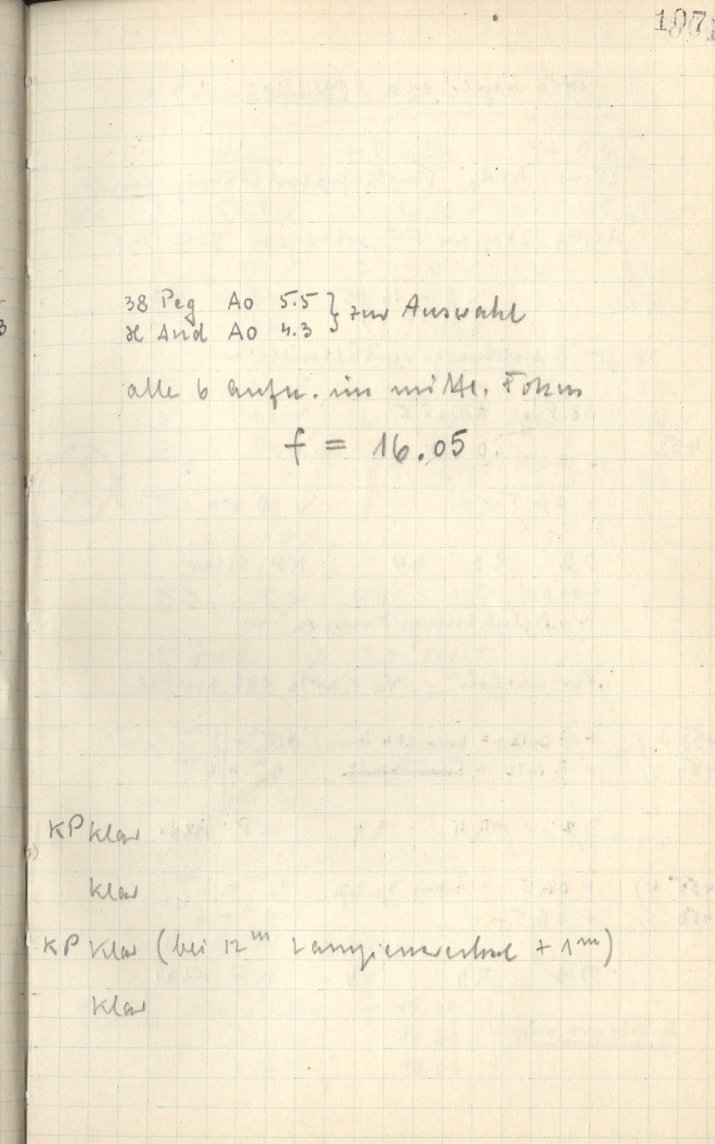 107
38 Peg A0 5.5 } zur Auswahl
ϰ And A0 4.3
alle 6 Aufn. im mittl. Fokus
f = 16.05
KP klar
klar
KP klar (bei 12ᵐ Lampenwechsel + 1ᵐ)
klar